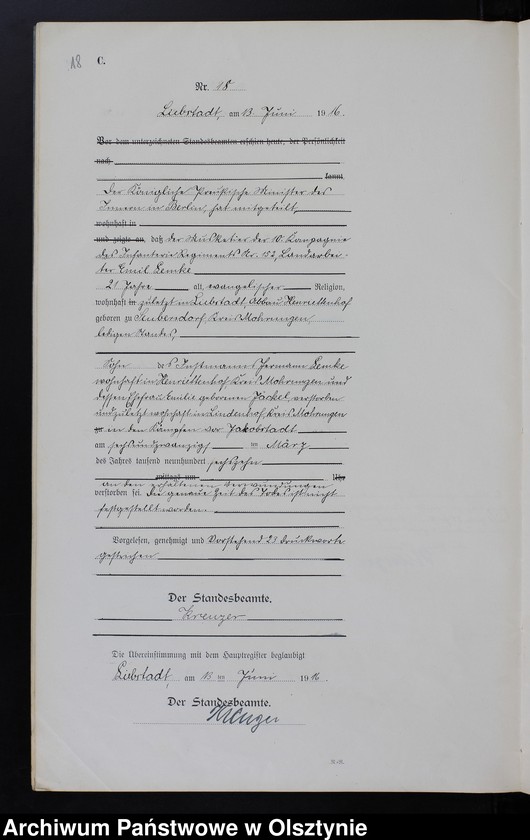 18 C.
Nr. 18
Liebstadt, am 13 Juni 1916.
Vor dem unterzeichneten Standesbeamten erschien heute, der Persönlichkeit
nach
kannt,
Der Königliche Preußische Minister des
Innern in Berlin, hat mitgeteilt,
wohnhaft in
und zeigte an, daß der Musketier der 10. Kompagnie
des Infanterie Regiments Nr. 152, Landarbei-
ter Emil Lemke
21 Jahre alt, evangelischer Religion,
wohnhaft in zuletzt in Liebstadt, Abbau Henriettenhof
geboren zu Seubersdorf, Kreis Mohrungen,
ledigen Standes,
Sohn des Instmanns Hermann Lemke
wohnhaft in Henriettenhof, Kreis Mohrungen und
dessen Ehefrau Emilie geborenen Jäckel, verstorben
und zuletzt wohnhaft in Lindenhof, Kreis Mohrungen
zu in den Kämpfen vor Jakobstadt
am sechsundzwanzigsten März
des Jahres tausend neunhundert sechszehn
mittags um Uhr
an den erhaltenen Verwundungen
verstorben sei. Die genaue Zeit des Todes ist nicht
festgestellt worden.
Vorgelesen, genehmigt und Vorstehend 23 Druckworte
gestrichen
Der Standesbeamte.
Krenzer
Die Übereinstimmung mit dem Hauptregister beglaubigt
Liebstadt, am 13 ten Juni 1916.
Der Standesbeamte.
Krenzer
Archiwum Państwowe w Olsztynie